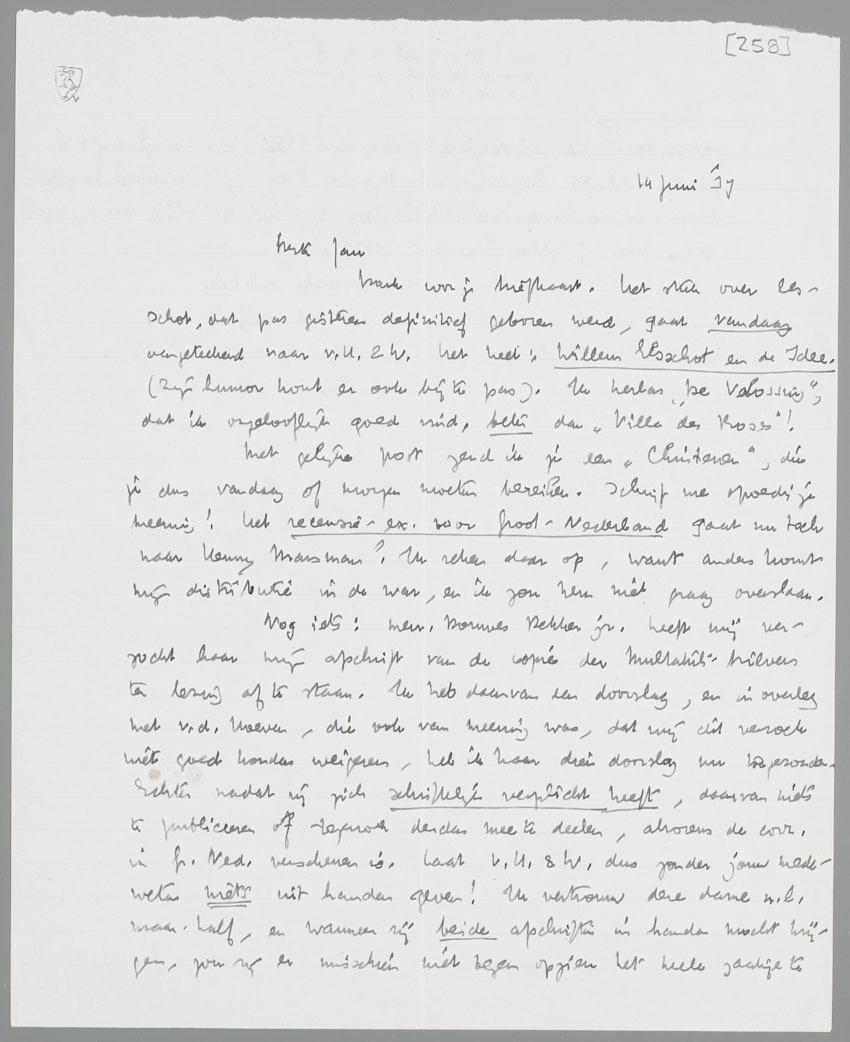 [258]
14 Juni '37
Beste Jan
Dank voor je briefkaart. Het stuk over Els-
schot, dat pas gisteren definitief geboren werd, gaat vandaag
aangeteekend naar v.H. & W. Het heet: Willem Elsschot en de Idee.
(Zijn humor komt er ook bij te pas). Ik herlas „De Verlossing",
dat ik ongelooflijk goed vind, beter dan „Villa des Roses"!
Met gelijke post zend ik je een „Christenen", die
je dus vandaag of morgen moet bereiken. Schrijf me spoedig je
meening! Het recensie-ex. voor Groot-Nederland gaat nu toch
naar Henny Marsman? Ik reken daar op, want anders komt
mijn distributie in de war, en ik zou hem niet graag overslaan.
Nog iets: mevr. Douwes Dekker jr. heeft mij ver-
zocht haar mijn afschrift van de copie der Multatuli-brieven
ter lezing af te staan. Ik heb daarvan een doorslag, en in overleg
met v.d. Hoeven, die ook van meening was, dat wij dit verzoek
niet goed konden weigeren, heb ik haar dien doorslag nu toegezonden.
Echter nadat zij zich schriftelijk verplicht heeft, daarvan niets
te publiceeren of tegenover derden mee te deelen, alvorens de corr.
in Gr. Ned. verschenen is. Laat v.H. & W. dus zonder jouw mede-
weten niets uit handen geven! Ik vertrouw deze dame n.l.
maar half, en wanneer zij beide afschriften in handen mocht krij-
gen, zou zij er misschien niet tegen opzien het heele zaakje te